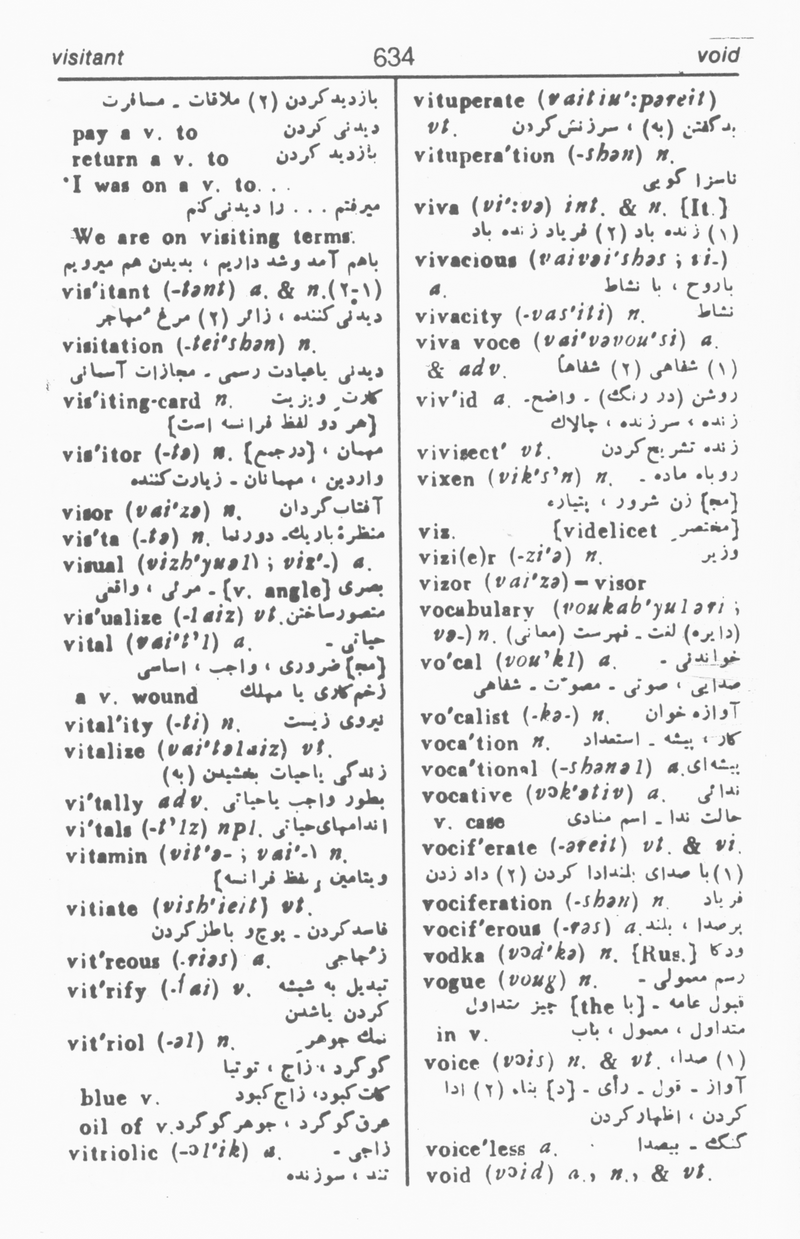 visitant 634 void
بازدید کردن (۲) ملاقات ـ مسافرت
pay a v. to دیدنی کردن
return a v. to بازدید کردن
I was on a v. to. . .
میرفتم . . . را دیدنی کنم
We are on visiting terms.
باهم آمد و شد داریم ، بدیدن هم میرویم
vis'itant (-tənt) a. & n.(۲-۱)
دیدنی کننده ، زائر (۲) مرغ مهاجر
visitation (-tei'shən) n.
دیدنی یاعیادت رسمی ـ مجازات آسمانی
vis'iting-card n. کارت ویزیت
[هر دو لفظ فرانسه است]
vis'itor (-tə) n. [درجمع] ، مهمان
واردین ، مهمانان ـ زیارت کننده
visor (vai'zə) n. آفتاب گردان
vis'ta (-tə) n. منظرهٔ باریك ـ دورنما
visual (vizh'yuəl) ; viz'-) a.
بصری [v. angle] ـ مرئی ، واقعی
vis'ualize (-laiz) vt. متصور ساختن
vital (vai't'l) a. حیاتی -
[مج] ضروری ، واجب ، اساسی
a v. wound زخم کاری یا مهلك
vital'ity (-ti) n. نیروی زیست
vitalize (vai'təlaiz) vt.
زندگی یاحیات بخشیدن (به)
vi'tally adv. بطور واجب یاحیاتی
vi'tals (-t'lz) npl. اندامهای حیاتی
vitamin (vit'ə- ; vai'-) n.
ویتامین [لفظ فرانسه]
vitiate (vish'ieit) vt.
فاسد کردن ـ پوچ و باطل کردن
vit'reous (-riəs) a. زجاجی
vit'rify (-fai) v. تبدیل به شیشه
کردن یاشدن
vit'riol (-əl) n. نمك جوهر
گوگرد ، زاج ، توتیا
blue v. کات کبود، زاج کبود
oil of v. عرق گوگرد ، جوهر گوگرد
vitriolic (-ɔl'ik) a. زاجی -
تند ، سوزنده
vituperate (vaitiu':pəreit)
vt. بد گفتن (به) ، سرزنش کردن
vitupera'tion (-shən) n.
ناسزا گویی
viva (vi':və) int. & n. [It.]
(۱) زنده باد (۲) فریاد زنده باد
vivacious (vaivei'shəs ; vi-)
a. باروح ، با نشاط
vivacity (-vas'iti) n. نشاط
viva voce (vai'vəvou'si) a.
& adv. (۱) شفاهی (۲) شفاهاً
viv'id a. روشن (در رنگ) ـ واضح -
زنده ، سرزنده ، چالاك
vivisect' vt. زنده تشریح کردن
vixen (vik's'n) n. روباه ماده -
[مج] زن شرور ، پتیاره
viz. [videlicet مختصر]
vizi(e)r (-zi'ə) n. وزیر
vizor (vai'zə) = visor
vocabulary (voukab'yuləri ;
və-) n. (دایره) لغت ـ فهرست (معانی)
vo'cal (vou'kl) a. خواندنی -
صدایی ، صوتی ـ مصوت ـ شفاهی
vo'calist (-kə-) n. آوازه خوان
voca'tion n. کار ، پیشه ـ استعداد
voca'tional (-shənəl) a. پیشه ای
vocative (vɔk'ətiv) a. ندائی
v. case حالت ندا ـ اسم منادی
vocif'erate (-əreit) vt. & vi.
(۱) با صدای بلند ادا کردن (۲) داد زدن
vociferation (-shən) n. فریاد
vocif'erous (-rəs) a. پرصدا ، بلند
vodka (vɔd'kə) n. [Rus.] ودکا
vogue (voug) n. رسم معمولی -
قبول عامه ـ [با the] چیز متداول
in v. متداول ، معمول ، باب
voice (vɔis) n. & vt. (۱) صدا،
آواز ـ قول ـ رأی ـ [د] بناء (۲) ادا
کردن ، اظهار کردن
voice'less a. گنگ ـ بیصدا
void (vɔid) a., n., & vt.